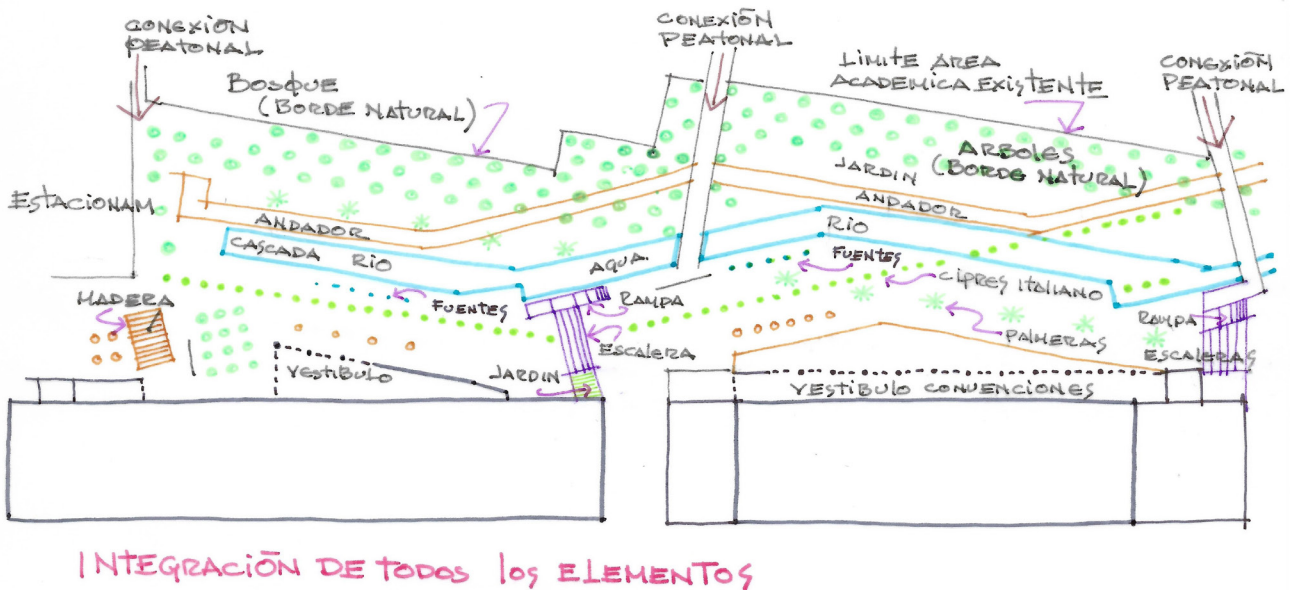 CONEXIÓN
PEATONAL
CONEXIÓN
PEATONAL
LIMITE AREA
ACADEMICA EXISTENTE
CONEXIÓN
PEATONAL
BOSQUE
(BORDE NATURAL)
ARBOLES
(BORDE NATURAL)
JARDIN
ESTACIONAM
ANDADOR
ANDADOR
CASCADA RIO
AGUA
RIO
FUENTES
FUENTES
CIPRES ITALIANO
MADERA
RAMPA
RAMPA
PALMERAS
ESCALERA
ESCALERAS
VESTIBULO
JARDIN
VESTIBULO CONVENCIONES
INTEGRACIÓN DE TODOS los ELEMENTOS